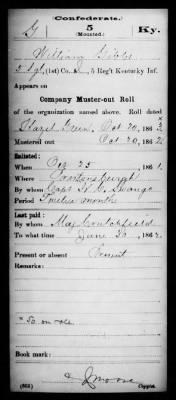 Confederate.
G 5 Ky.
(Mounted.)
William Gibbs
5 Sgt, (1st) Co. , 5 Reg't Kentucky Inf.
Appears on
Company Muster-out Roll
of the organization named above. Roll dated
Hazel Green, Oct 20, 186
Mustered out Oct 20, 1862
Enlisted:
When Oct 25, 1861.
Where Prestonsburgh
By whom Capt. Swango
Period Twelve months
Last paid:
By whom Maj Crutchfield
To what time June 30, 1862.
Present or absent Present
Remarks:
* So on role
Book mark:
J Moore
(653) Copyist.